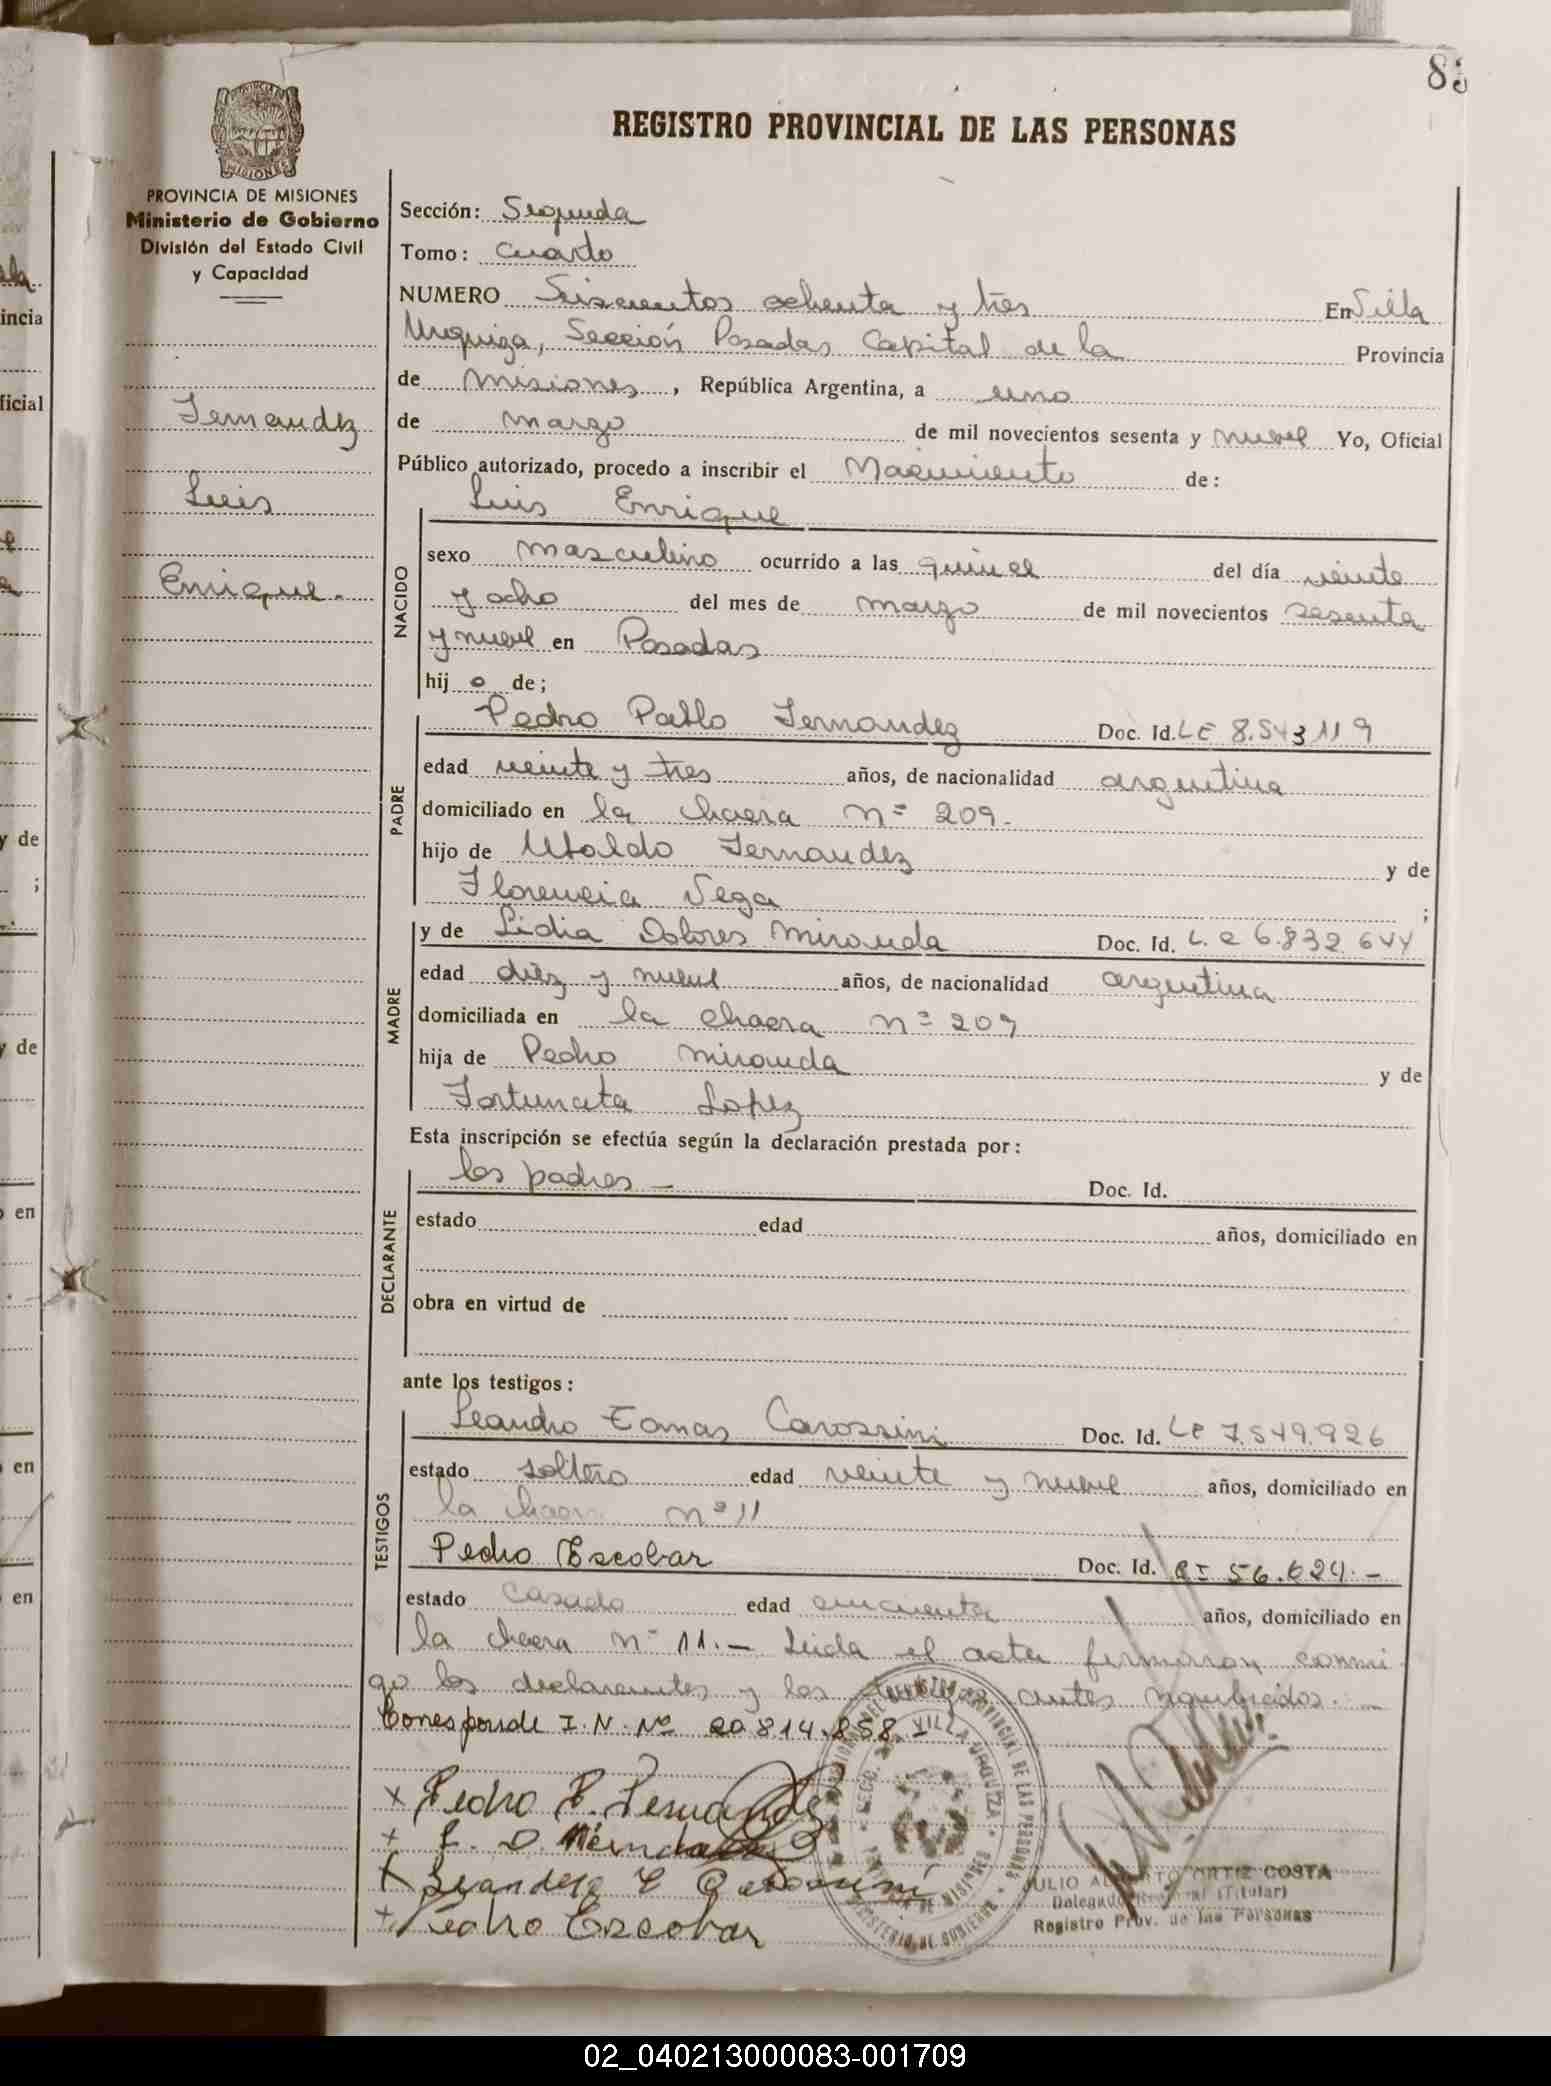 83
REGISTRO PROVINCIAL DE LAS PERSONAS
PROVINCIA DE MISIONES
Ministerio de Gobierno
División del Estado Civil
y Capacidad
Fernandez
Luis
Enrique.
Sección: Segunda
Tomo: Cuarto
NUMERO Seiscientos ochenta y tres En Villa
Urquiza, Sección Posadas Capital de la Provincia
de Misiones, República Argentina, a uno
de marzo de mil novecientos sesenta y nueve Yo, Oficial
Público autorizado, procedo a inscribir el Nacimiento de:
NACIDO
Luis Enrique
sexo masculino ocurrido a las quince del día veinte
y ocho del mes de marzo de mil novecientos sesenta
y nueve en Posadas
hij o de;
PADRE
Pedro Pablo Fernandez Doc. Id. LE 8.543119
edad veinte y tres años, de nacionalidad argentina
domiciliado en la chacra nº 209.
hijo de Ubaldo Fernandez y de
Florencia Vega ;
MADRE
y de Lidia Dolores Miranda Doc. Id. L.C 6.832 644
edad diez y nueve años, de nacionalidad argentina
domiciliada en la chacra nº 209
hija de Pedro Miranda y de
Fortunata Lopez
Esta inscripción se efectúa según la declaración prestada por:
DECLARANTE
los padres - Doc. Id.
estado edad años, domiciliado en
obra en virtud de
ante los testigos:
TESTIGOS
Leandro Tomas Carossini Doc. Id. LE 7.549.926
estado soltero edad veinte y nueve años, domiciliado en
la chacra nº 11
Pedro Escobar Doc. Id. CI 56.624.-
estado casado edad cincuenta años, domiciliado en
la chacra nº 11.- Leida el acta firmaron conmi
go los declarantes y los testigos antes nombrados.-
Corresponde I.N. Nº 20.814.858.-
x Pedro P. Fernandez
+ L. D. Miranda
x Leandro T Carossini
+ Pedro Escobar
REGISTRO PROVINCIAL DE LAS PERSONAS
SECC. 2a VILLA URQUIZA
PROVINCIA DE MISIONES
MINISTERIO DE GOBIERNO
JULIO ALBERTO ORTIZ COSTA
Delegado (Titular)
Registro Prov. de las Personas
02_040213000083-001709